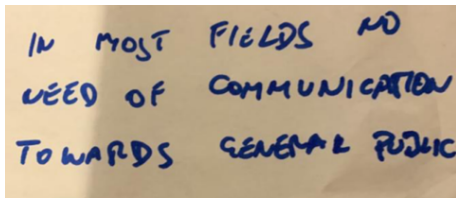 IN MOST FIELDS NO
NEED OF COMMUNICATION
TOWARDS GENERAL PUBLIC